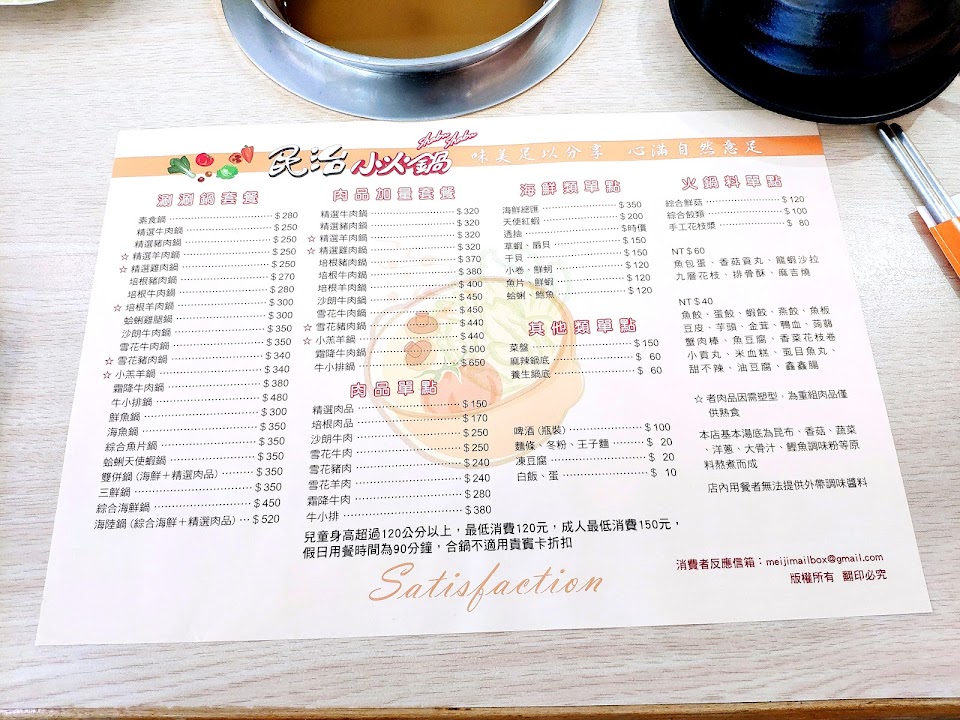 民治小火鍋 Shabu Shabu 味美足以分享 心滿自然意足
涮涮鍋套餐
素食鍋 $280
精選牛肉鍋 $250
精選豬肉鍋 $250
☆精選羊肉鍋 $250
☆精選雞肉鍋 $250
培根豬肉鍋 $270
培根牛肉鍋 $280
☆培根羊肉鍋 $300
蛤蜊雞腿鍋 $300
沙朗牛肉鍋 $350
雪花牛肉鍋 $350
☆雪花豬肉鍋 $340
☆小羔羊鍋 $340
霜降牛肉鍋 $380
牛小排鍋 $480
鮮魚鍋 $300
海魚鍋 $350
綜合魚片鍋 $350
蛤蜊天使蝦鍋 $350
雙併鍋(海鮮+精選肉品) $350
三鮮鍋 $350
綜合海鮮鍋 $450
海陸鍋(綜合海鮮+精選肉品) $520
肉品加量套餐
精選牛肉鍋 $320
精選豬肉鍋 $320
☆精選羊肉鍋 $320
☆精選雞肉鍋 $320
培根豬肉鍋 $370
培根牛肉鍋 $380
培根羊肉鍋 $400
沙朗牛肉鍋 $450
雪花牛肉鍋 $450
☆雪花豬肉鍋 $440
☆小羔羊鍋 $440
霜降牛肉鍋 $500
牛小排鍋 $650
肉品單點
精選肉品 $150
培根肉品 $170
沙朗牛肉 $250
雪花牛肉 $250
雪花豬肉 $240
雪花羊肉 $240
霜降牛肉 $280
牛小排 $380
海鮮類單點
海鮮總匯 $350
天使紅蝦 $200
透抽 $時價
草蝦、扇貝 $150
干貝 $150
小卷、鮮蚵 $120
魚片、鮮蝦 $120
蛤蜊、鯛魚 $120
其他類單點
菜盤 $150
麻辣鍋底 $60
養生鍋底 $60
啤酒(瓶裝) $100
麵條、冬粉、王子麵 $20
凍豆腐 $20
白飯、蛋 $10
火鍋料單點
綜合鮮菇 $120
綜合餃類 $100
手工花枝漿 $80
NT$60
魚包蛋、香菇貢丸、龍蝦沙拉
九層花枝、排骨酥、麻吉燒
NT$40
魚餃、蛋餃、蝦餃、燕餃、魚板
豆皮、芋頭、金茸、鴨血、蒟蒻
蟹肉棒、魚豆腐、香菜花枝卷
小貢丸、米血糕、虱目魚丸、
甜不辣、油豆腐、鑫鑫腸
☆者肉品因需塑型,為重組肉品僅
供熟食
本店基本湯底為昆布、香菇、蔬菜
、洋蔥、大骨汁、鰹魚調味粉等原
料熬煮而成
店內用餐者無法提供外帶調味醬料
兒童身高超過120公分以上,最低消費120元,成人最低消費150元,
假日用餐時間為90分鐘,合鍋不適用貴賓卡折扣
Satisfaction
消費者反應信箱:meijimailbox@gmail.com
版權所有 翻印必究